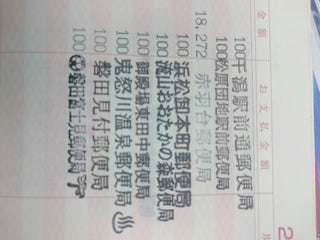 金額 お支払金額
2
100干潟駅前通郵便局
100松原団地駅前郵便局
18,272 赤羽台郵便局
100 浜松卸本町郵便局
100 流山おおたかの森郵便局
100 御殿場東田中郵便局
100 鬼怒川温泉郵便局♨
100 磐田見付郵便局
100 磐田富士見郵便局